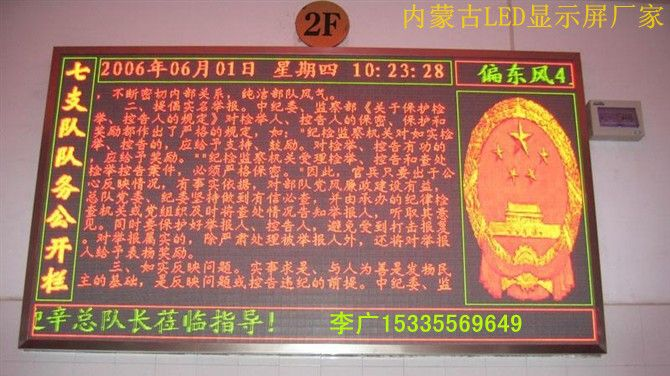 内蒙古LED显示屏厂家
2F
2006年06月01日 星期四 10:23:28
偏东风4
七支队队务公开栏
，不断密切内部关系，纯洁部队风气。
二、提倡实名举报。中纪委、监察部《关于保护检
举、控告人的规定》对检举人、控告人的保密、保护和
奖励都作出了严格的规定，如："纪检监察机关对如实检
举、控告的，应给予支持、鼓励。对检举、控告有功的
，应给予奖励。""纪检监察机关受理检举、控告和查处
检举控告案件，必须严格保密。"因此，官兵只要出于公
心反映情况，有事实依据，对部队党风廉政建设有益，
总队党委、纪委坚持做到有信必查，并由承办的纪律检
查机关或党组织及时将查处情况告知举报人，听取其意
见。同时要保护好举报人、控告人，避免受到打击报复
。对举报属实的，除严肃处理被举报人外，还将对举报
人给予表扬奖励。
三、如实反映问题。实事求是、与人为善是发扬民
主的基础，是反映问题或控告违纪的前提。中纪委、监
迎辛总队长莅临指导！
李广15335569649